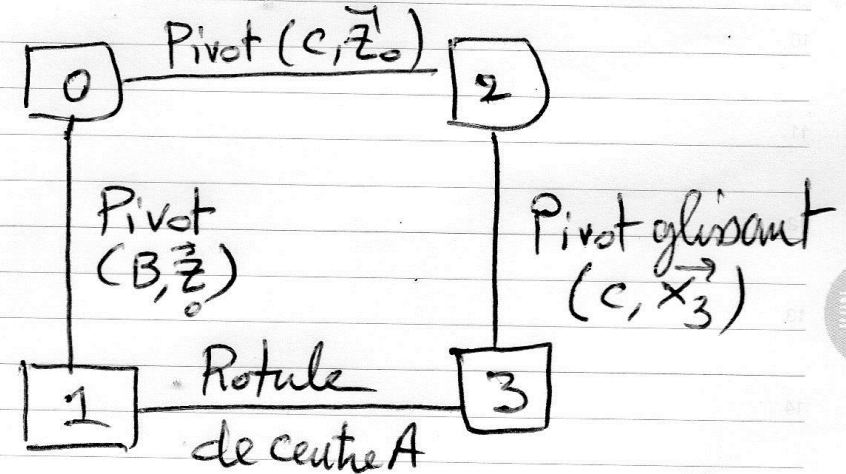 Pivot (C, z⃗₀)
0
2
Pivot
(B, z⃗₀)
Pivot glissant
(C, x⃗₃)
Rotule
1
3
de centre A